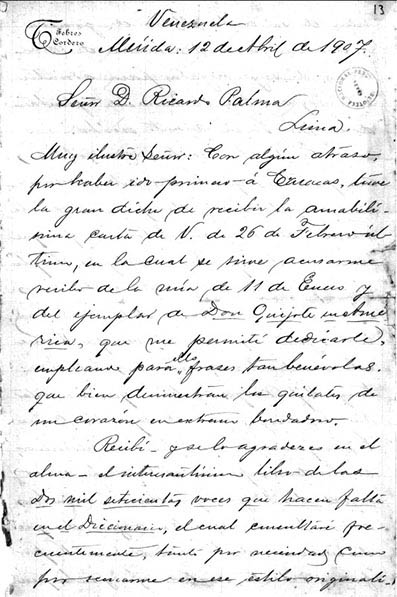 13
Venezuela
Tulio Febres
Cordero
Mérida: 12 de Abril de 1907.
Señor D. Ricardo Palma
Lima.
Muy ilustre Señor: Con algún atraso,
por haber ido primero á Caracas, tuve
la gran dicha de recibir la amabilí-
sima carta de V. de 26 de Febrero úl-
timo, en la cual se sirve acusarme
recibo de la mía de 11 de Enero y
del ejemplar de Don Quijote en Amé-
rica, que me permití dedicarle,
empleando para ello frases tan benévolas,
que bien demuestran los quilates de
un corazón en extremo bondadoso.
Recibí - y se lo agradezco en el
alma - el interesantísimo libro de las
Dos mil setecientas voces que hacen falta
en el Diccionario, el cual consultaré fre-
cuentemente, tanto por necesidad como
por recrearme en ese estilo originalí-